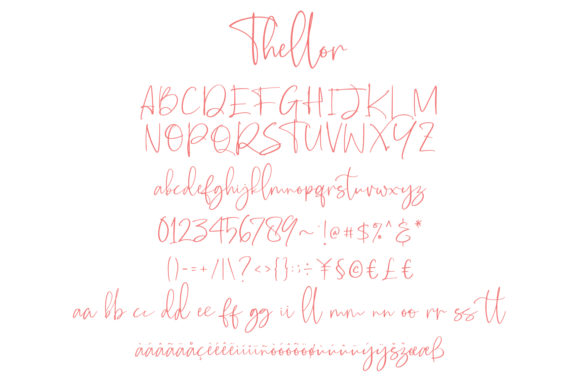 Thellor
ABCDEFGHIJKLM
NOPQRSTUVWXYZ
abcdefghijklmnopqrstuvwxyz
0123456789~·!@#$%^&*
()-=+/|\?<>{}:;÷¥§©€£€
aa bb cc dd ee ff gg ii ll mm nn oo rr ss tt